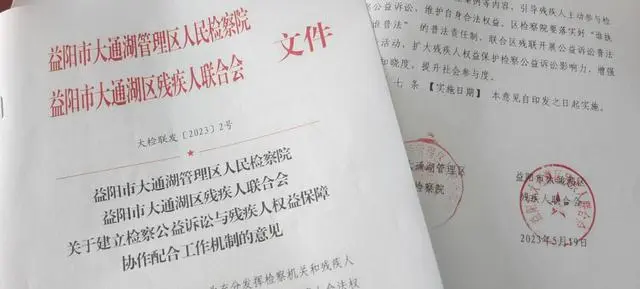 益阳市大通湖管理区人民检察院
益阳市大通湖区残疾人联合会
文件
大检联发〔2023〕2号
益阳市大通湖管理区人民检察院
益阳市大通湖区残疾人联合会
关于建立检察公益诉讼与残疾人权益保障
协作配合工作机制的意见
充分发挥检察机关和残疾人
例等内容，引导残疾人主动参与检
益诉讼，维护自身合法权益。区检察院要落实好“谁执
谁普法”的普法责任制，联合区残联开展公益诉讼普法
活动，扩大残疾人权益保护检察公益诉讼影响力，增强
知晓度，提升社会参与度。
七条 【实施日期】 本意见自印发之日起实施。
通湖管理区
检察院
益阳市大通湖区
残疾人联合会
2023年5月19日